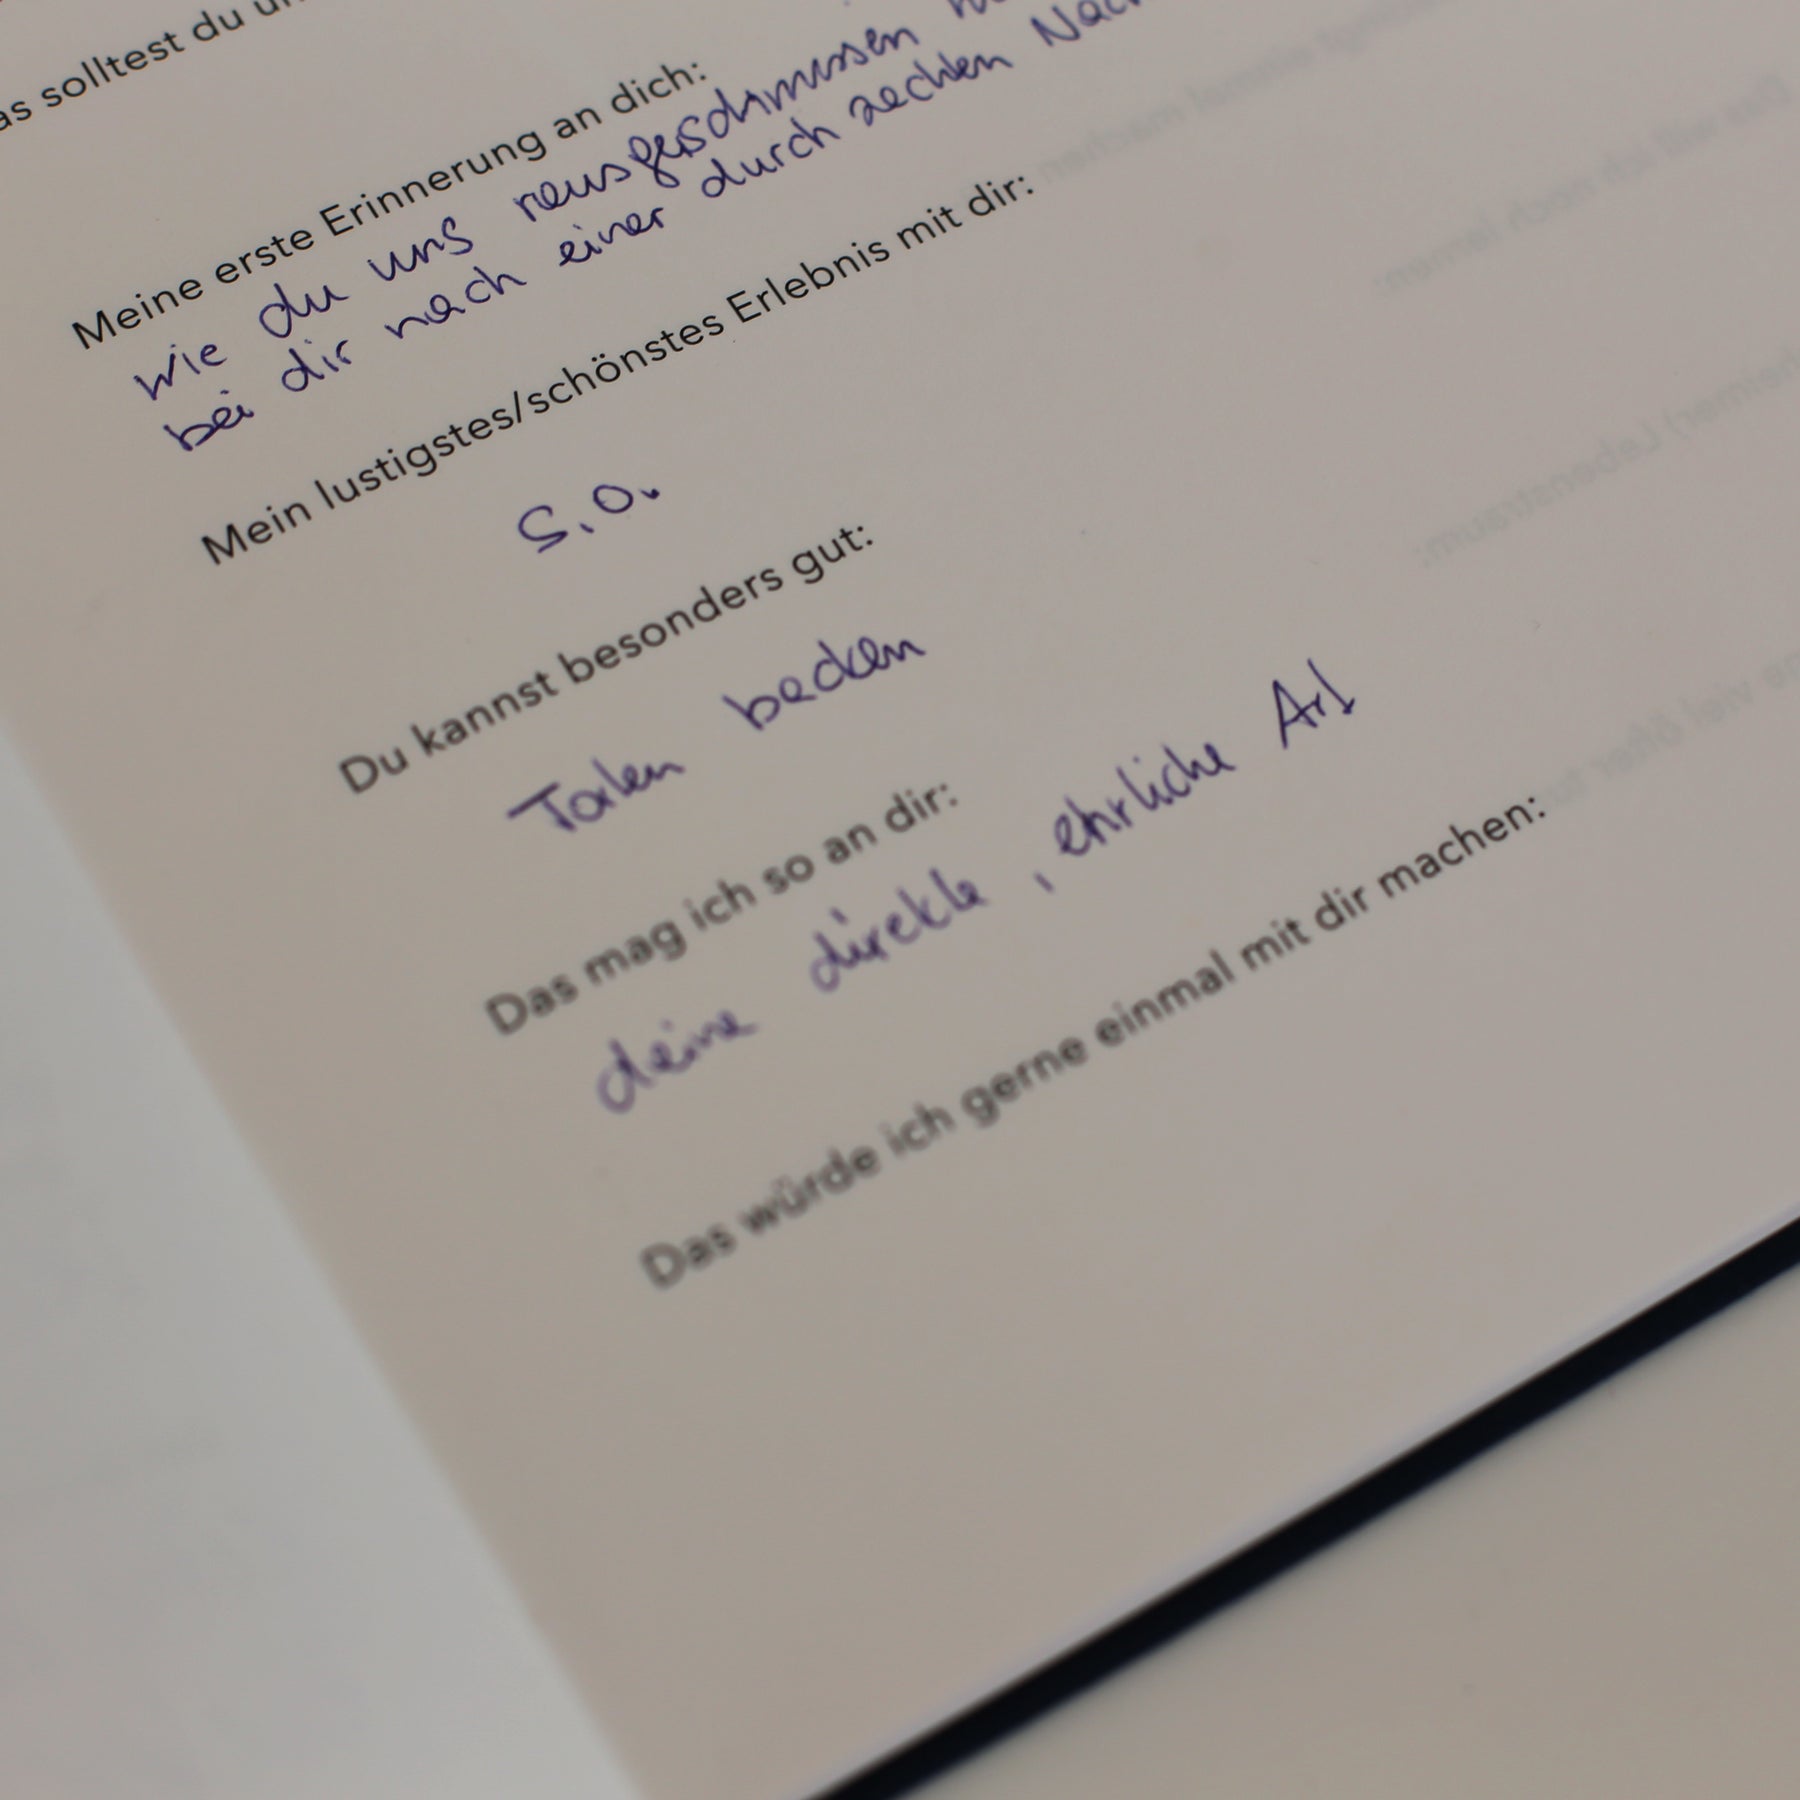 as solltest du u
Meine erste Erinnerung an dich:
wie du uns rausgeschmissen
bei dir nach einer durch zechten Nach
Mein lustigstes/schönstes Erlebnis mit dir:
s.o.
Du kannst besonders gut:
Torten backen
Das mag ich so an dir:
deine direkte, ehrliche Art
Das würde ich gerne einmal mit dir machen: